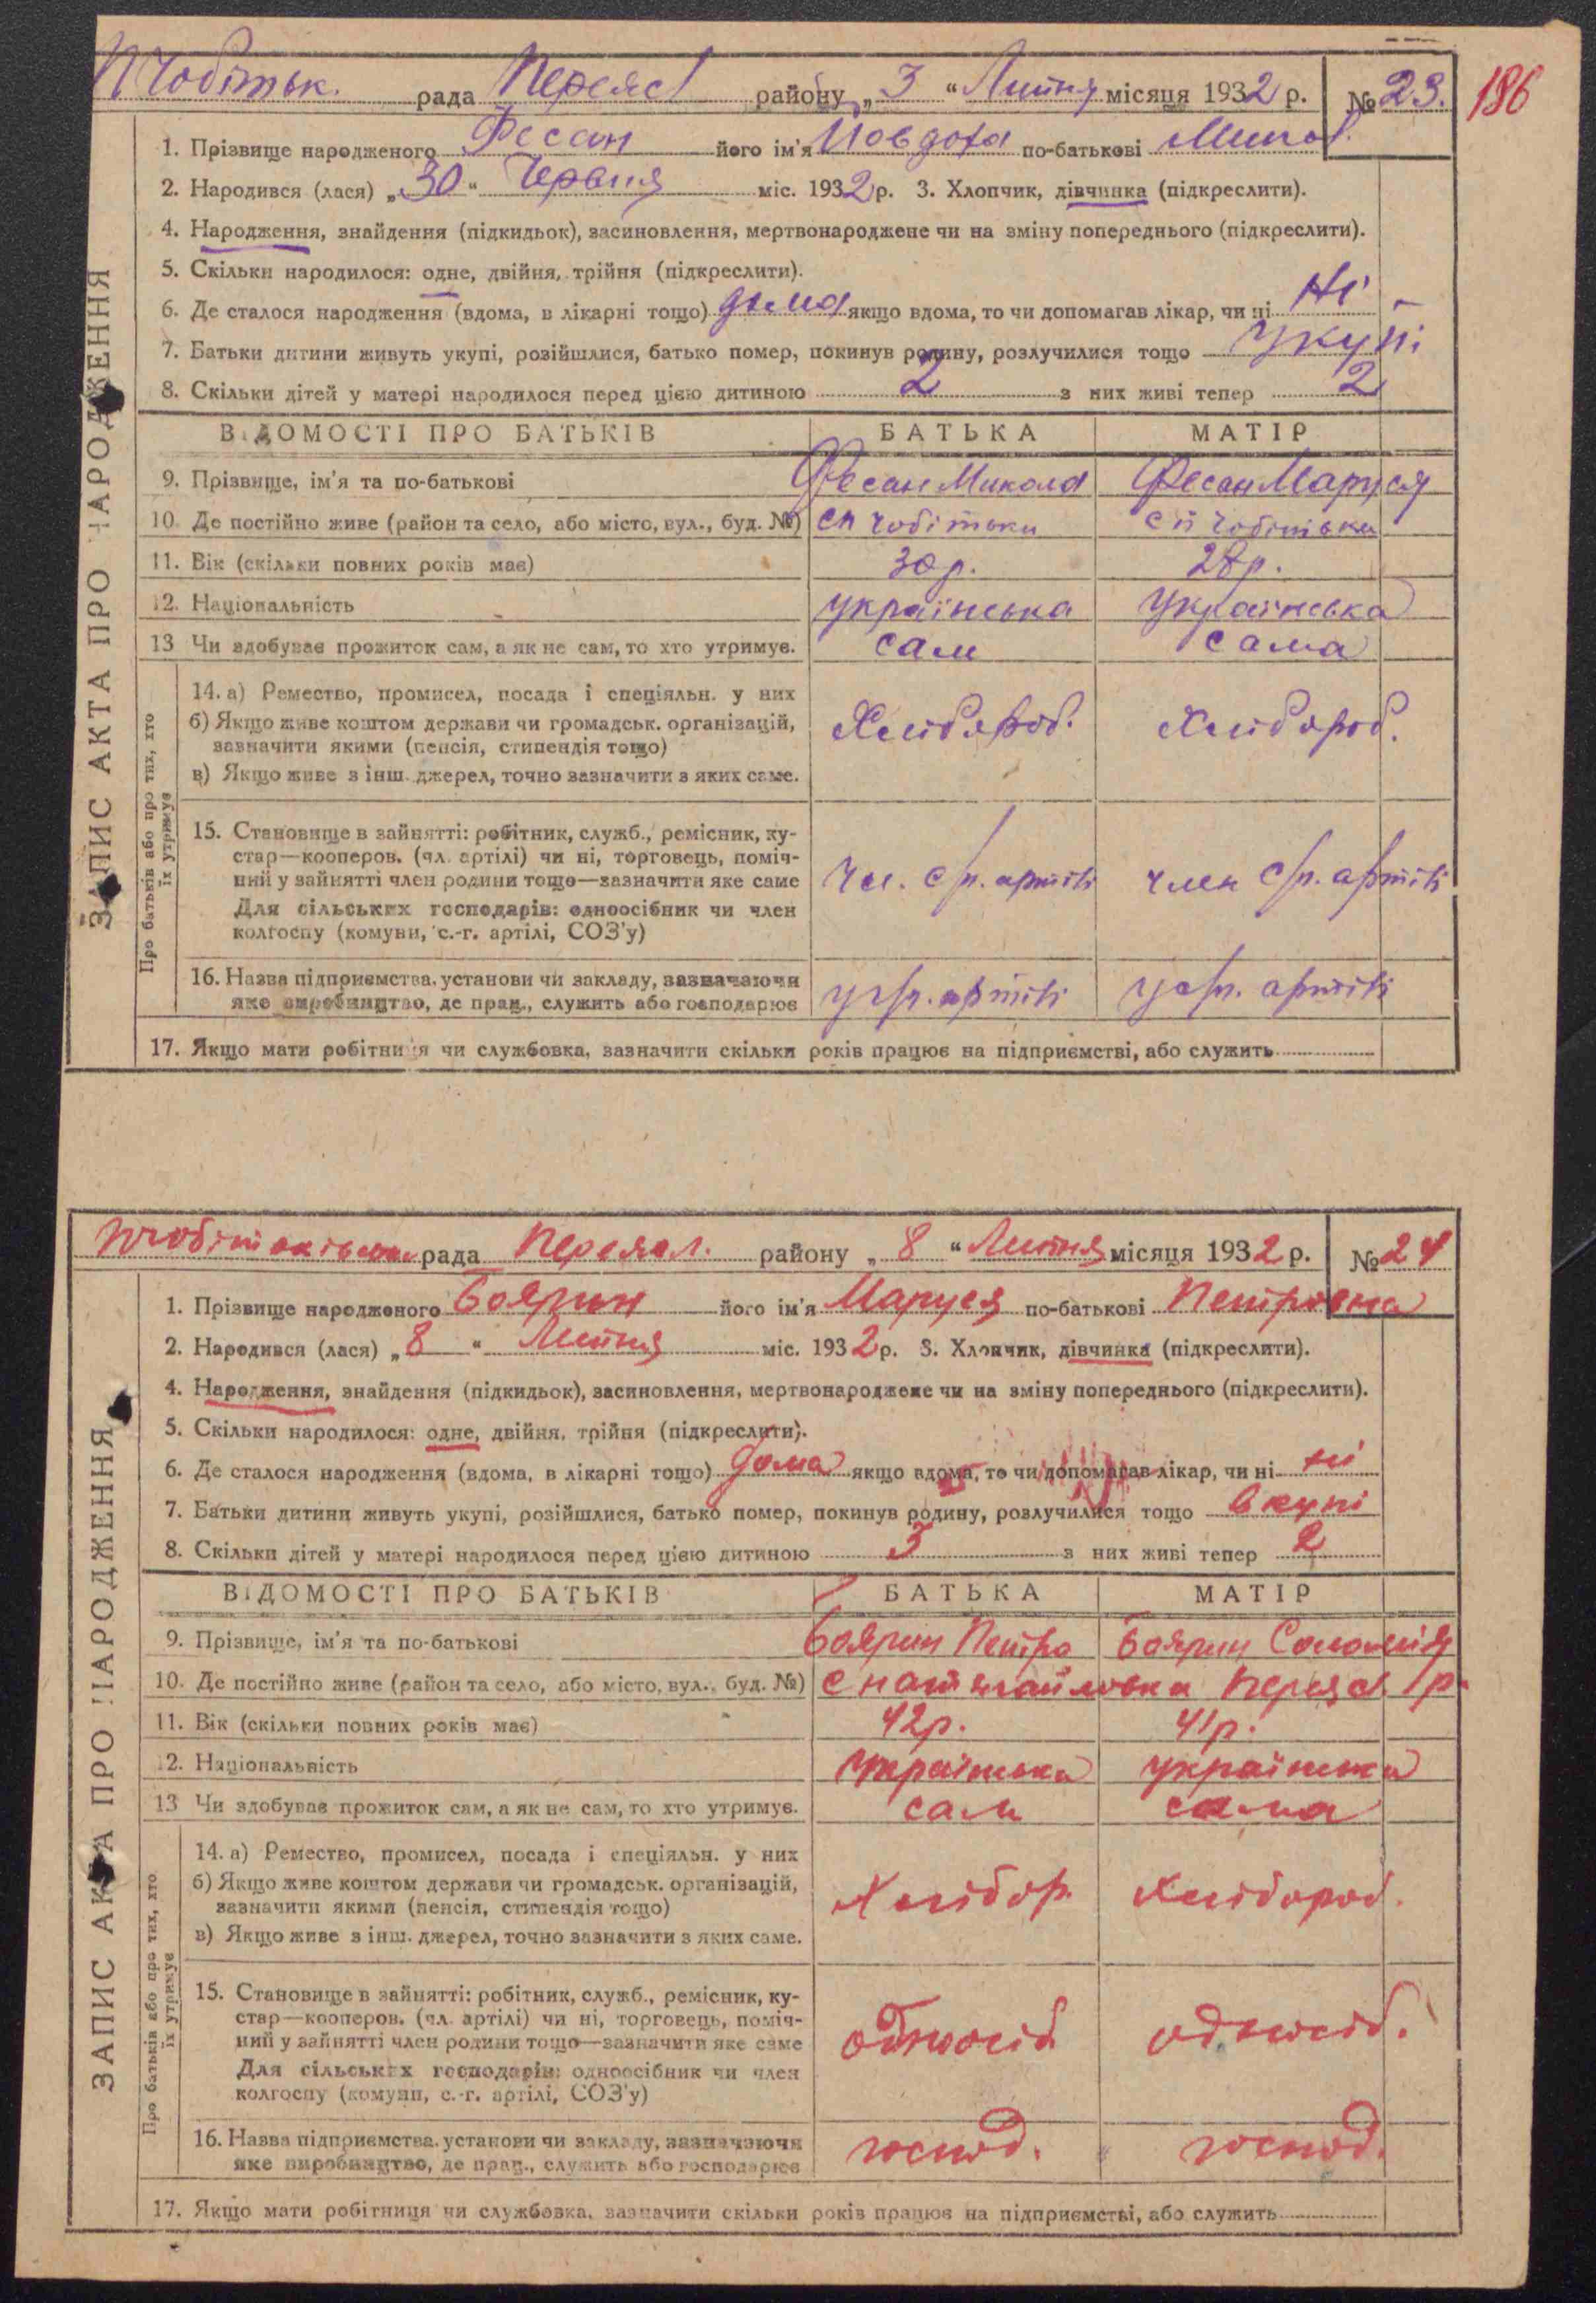 ПЧобітьк. рада Переясл району „3“ Липня місяця 1932 р. № 23. 186
1. Прізвище народженого Фесан його ім'я Йовдоха по-батькові Микол.
2. Народився (лася) „30“ Червня міс. 1932 р. 3. Хлопчик, дівчинка (підкреслити).
4. Народження, знайдення (підкидьок), засиновлення, мертвонароджене чи на зміну попереднього (підкреслити).
5. Скільки народилося: одне, двійня, трійня (підкреслити).
6. Де сталося народження (вдома, в лікарні тощо) дома якщо вдома, то чи допомагав лікар, чи ні Ні
7. Батьки дитини живуть укупі, розійшлися, батько помер, покинув родину, розлучилися тощо укупі
8. Скільки дітей у матері народилося перед цією дитиною 2 з них живі тепер 2
ВІДОМОСТІ ПРО БАТЬКІВ БАТЬКА МАТІР
9. Прізвище, ім'я та по-батькові Фесан Микола Фесан Маруся
10. Де постійно живе (район та село, або місто, вул., буд. №) с п чобітьки с п чобітьки
11. Вік (скільки повних років має) 30 р. 28 р.
12. Національність українська українська
13 Чи здобуває прожиток сам, а як не сам, то хто утримує. сам сама
14. а) Ремество, промисел, посада і спеціяльн. у них
б) Якщо живе коштом держави чи громадськ. організацій, Хлібороб. Хлібороб.
зазначити якими (пенсія, стипендія тощо)
в) Якщо живе з інш. джерел, точно зазначити з яких саме.
15. Становище в зайнятті: робітник, служб., ремісник, ку-
стар—кооперов. (чл. артілі) чи ні, торговець, поміч-
ний у зайнятті член родини тощо—зазначити яке саме чл. с/г. артілі член с/г. артілі
Для сільських господарів: одноосібник чи член
колгоспу (комуни, с.-г. артілі, СОЗ'у)
16. Назва підприємства, установи чи закладу, зазначаючи
яке виробництво, де прац., служить або господарює у с/г. артілі у с/г. артілі
17. Якщо мати робітниця чи службовка, зазначити скільки років працює на підприємстві, або служить
ЗАПИС АКТА ПРО НАРОДЖЕННЯ
Про батьків або про тих, хто
їх утримує
рада Переясл. району „8“ Липня місяця 1932 р. № 24
1. Прізвище народженого Боярин його ім'я Маруся по-батькові Петровна
2. Народився (лася) „8“ Липня міс. 1932 р. 3. Хлопчик, дівчинка (підкреслити).
4. Народження, знайдення (підкидьок), засиновлення, мертвонароджене чи на зміну попереднього (підкреслити).
5. Скільки народилося: одне, двійня, трійня (підкреслити).
6. Де сталося народження (вдома, в лікарні тощо) дома якщо вдома, то чи допомагав лікар, чи ні ні
7. Батьки дитини живуть укупі, розійшлися, батько помер, покинув родину, розлучилися тощо вкупі
8. Скільки дітей у матері народилося перед цією дитиною 3 з них живі тепер 2
ВІДОМОСТІ ПРО БАТЬКІВ БАТЬКА МАТІР
9. Прізвище, ім'я та по-батькові Боярин Петро Боярин Соломія
10. Де постійно живе (район та село, або місто, вул., буд. №) с Переясл р.
11. Вік (скільки повних років має) 42 р. 41 р.
12. Національність українська українська
13 Чи здобуває прожиток сам, а як не сам, то хто утримує. сам сама
14. а) Ремество, промисел, посада і спеціяльн. у них
б) Якщо живе коштом держави чи громадськ. організацій, Хлібор. Хлібороб.
зазначити якими (пенсія, стипендія тощо)
в) Якщо живе з інш. джерел, точно зазначити з яких саме.
15. Становище в зайнятті: робітник, служб., ремісник, ку-
стар—кооперов. (чл. артілі) чи ні, торговець, поміч-
ний у зайнятті член родини тощо—зазначити яке саме одноосіб. одноосіб.
Для сільських господарів: одноосібник чи член
колгоспу (комуни, с.-г. артілі, СОЗ'у)
16. Назва підприємства, установи чи закладу, зазначаючи
яке виробництво, де прац., служить або господарює господ. господ.
17. Якщо мати робітниця чи службовка, зазначити скільки років працює на підприємстві, або служить
ЗАПИС АКТА ПРО НАРОДЖЕННЯ
Про батьків або про тих, хто
їх утримує